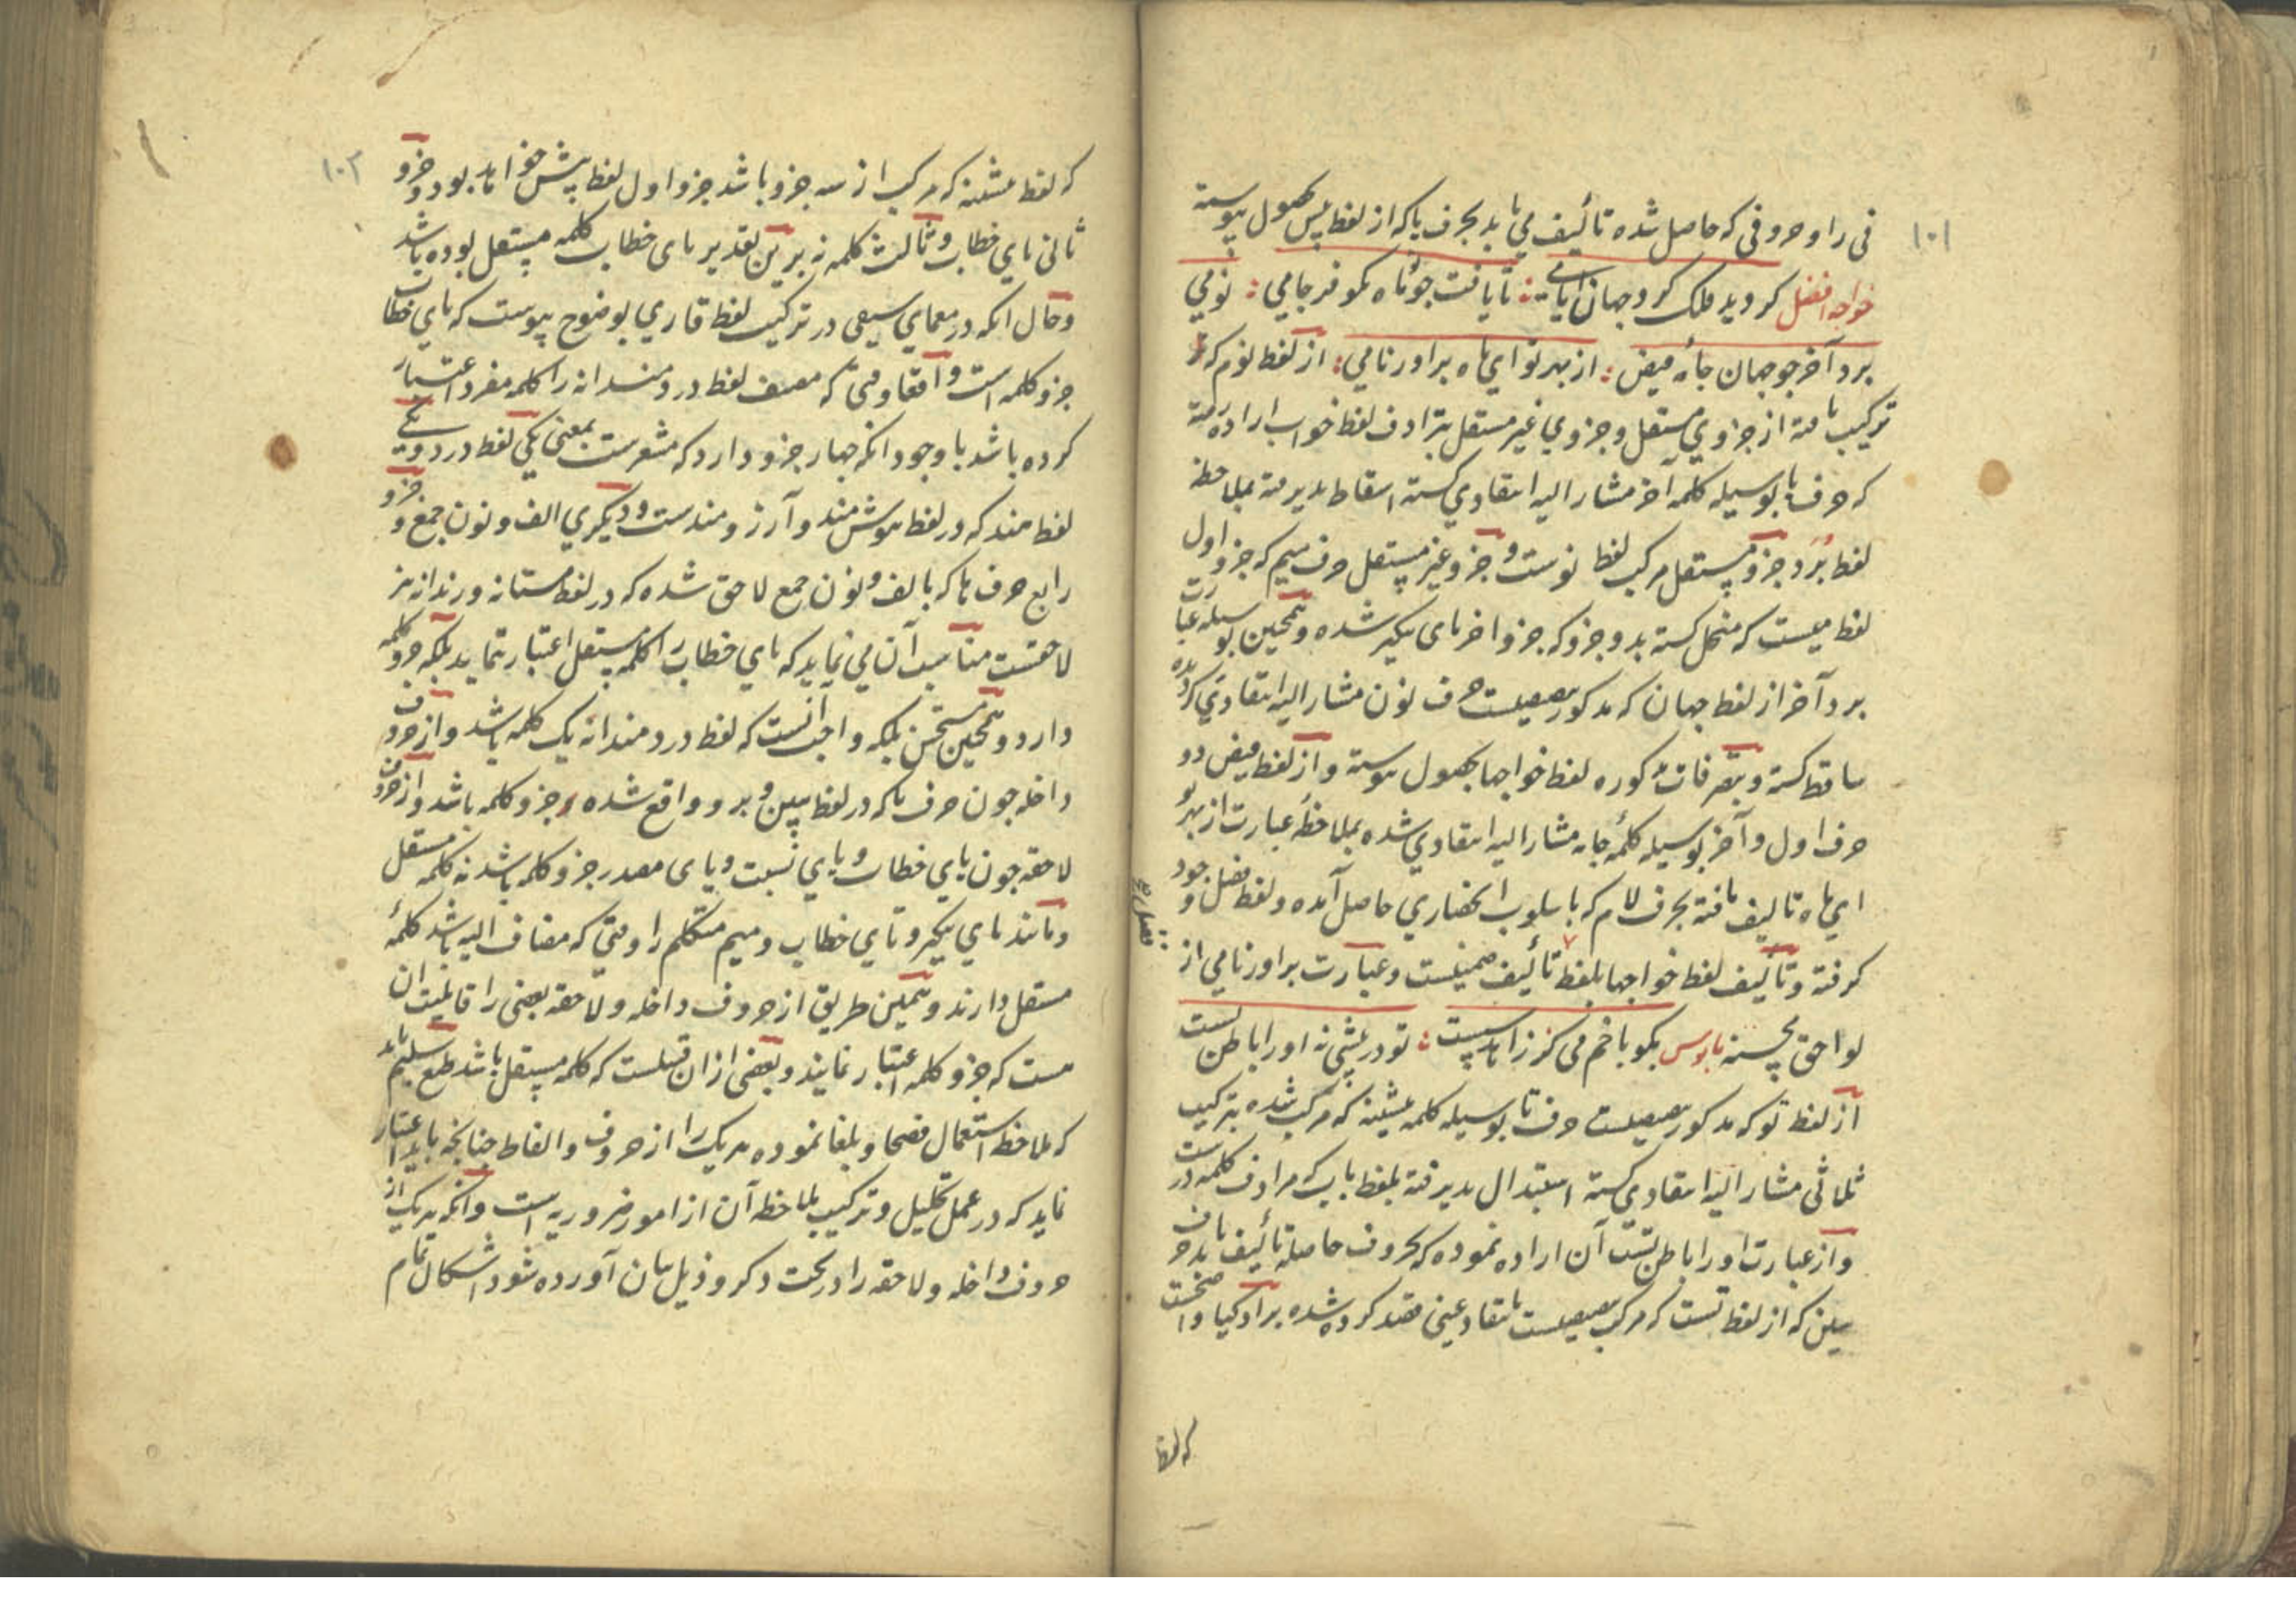 ۱۰۱
فی را و حروفی که حاصل شده تألیف می یابد بحرف یا که از لفظ پس بحصول پیوسته
خواجه افضل کردید فلک کرد جهان ایامی : تا یافت جوتاه نکو فرجامی : نومی
برد آخر جو جهان جأه فیض : از بهر تو ای ماه براور نامی : از لفظ نوم که
ترکیب یافته از جزوی مستقل و جزوی غیر مستقل بترادف لفظ خواب اراده رفته
که حرف با بوسیله کلمه آخر مشار الیه انتقادی کشته اسقاط پذیرفته بملاحظه
لفظ بُرد و جزو مستقل مرکب لفظ نوست و جزو غیر مستقل حرف میم که جزو اول
لفظ میست که منحل کشته بدو جزو که جزو اخر یای نکیر شده و همچنین بوسیله عبارت
برد آخر از لفظ جهان که مذکور بعینهست حرف نون مشار الیه انتقادی کردیده
ساقط کشته و بتصرفات مذکوره لفظ خواجها بحصول پیوسته و از لفظ فیض دو
حرف اول و آخر بوسیله کلمهٔ جاه مشار الیه انتقادی شده بملاحظهٔ عبارت از بهر تو
ای ماه تالیف یافته بحرف لام که باسلوب انحصاری حاصل آمده و لفظ فضل وجود
کرفته و تألیف لفظ خواجها بلفظ تألیف ضمنیست و عبارت براور نامی از
لواحق محسنه باوس بکو با خم می کز زاهد پست : تو در عیشی نه او را باطن تست
از لفظ تو که مذکور بعینهست حرف تا بوسیله کلمه عیشینه که مرکب شده بترکیب
ثلاثی مشار الیه انتقادی کشته استبدال پذیرفته بلفظ باب که مرادف کلمه درست
و از عبارت او را باطن تست آن اراده نموده که بحروف حاصله تألیف یابد حرف
سین که از لفظ تست که مرکب بعینهست بانتقاد عینی قصد کرده شده بر اذکیا واضحست
که لفظ
۱۰۲
که لفظ عیشینه که مرکب از سه جزو باشد جزو اول لفظ عیش خواهد بود و جزو
ثانی یای خطاب و ثالث کلمه نه برین تقدیر یای خطاب کلمه مستقل بوده باشد
و حال انکه در معمای سیفی در ترکیب لفظ قاری بوضوح پیوست که یای خطاب
جزو کلمه است و آنفا وقتی که مصنف لفظ دردمندانه را کلمه مفرد اعتبار
کرده باشد با وجود انکه جهار جزو دارد که مشعرست بمعنی یکی لفظ درد دویم
لفظ مند که در لفظ هوش مند و آرزومندست و دیکری الف و نون جمع و جزو
رابع حرف ها که بالف و نون جمع لاحق شده که در لفظ مستانه و رندانه نیز
لاحقست مناسب آن می نماید که یای خطاب را کلمه مستقل اعتبار ننماید بلکه جزو کلمه
دارد و همچنین مستحسن بلکه واجب آنست که لفظ دردمندانه یک کلمه باشد و از حروف
داخله جون حرف با که در لفظ ببین و برو واقع شده جزو کلمه باشد و از حروف
لاحقه جون یای خطاب و یای نسبت و یای مصدر جزو کلمه باشد نه کلمه مستقل
و مانند یای نکیر و تای خطاب و میم متکلم را وقتی که مضاف الیه باشد کلمهٔ
مستقل دارند و همین طریق از حروف داخله و لاحقه بعضی را قابلیت ان
هست که جزو کلمه اعتبار نمایند و بعضی ازان قبیلست که کلمه مستقل باشد طبع سلیم باید
که ملاحظه استعمال فصحا و بلغا نموده هر یک را از حروف و الفاظ چنانچه باید اعتبار
نماید که در عمل تحلیل و ترکیب ملاحظه آن از امور ضروریه است و انکه هر یک از
حروف داخله و لاحقه را در تحت ذکر و ذیل بیان آورده شود اشکال تمام